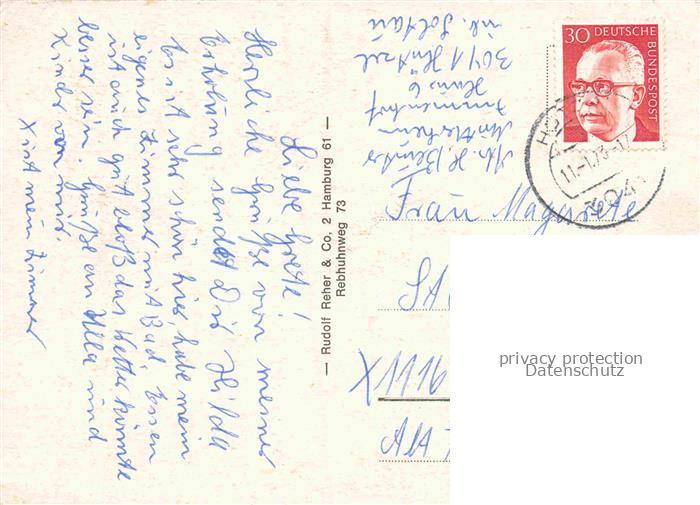 Liebe Grete!
Herzliche Grüße von meiner
Erholung sendet Dir Hilda
Es ist sehr schön hier, habe mein
eigenes Zimmer mit Bad. Essen
ist auch gut bloß das Wetter könnte
besser sein. Grüße an Illa und
Kinder von mir.
X ist mein Zimmer
— Rudolf Reher & Co, 2 Hamburg 61 —
Rebhuhnweg 73
Mütterheim
Immenhof
Haus 6
3041 Hützel
ük. Soltau
30 DEUTSCHE
BUNDESPOST
11.-1.73-17
3041
Frau Magarete
X1116
Alt
privacy protection
Datenschutz